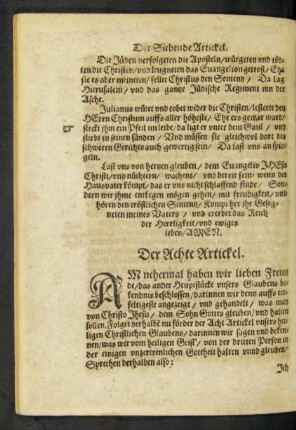 Der Siebende Artickel.
Die Jüden verfolgeten die Aposteln/ würgeten vnd töd-
ten die Christen/ vnd leugneten das Euangelion getrost/ Ehe
sie es aber meineten/ fellet Christus den Sentenz/ Da lag
Hierusalem/ vnd das gantze Jüdische Regiment inn der
Asche.
Julianus wütet vnd tobet wider die Christen/ lesterte den
HErrn Christum auffs aller höheste/ Ehe ers gewar ward/
steckt jhm ein Pfeil im leibe/ da ligt er vnter dem Gaul/ vnd
stirbt in seinen sünden/ Vnd müssen sie gleichwol dort des
schweren Gerichts auch gewertig sein/ Da last vns an spie-
geln.
Last vns von hertzen gleuben/ dem Euangelio JHEsu
Christi/ vnd nüchtern/ wachent/ vnd bereit sein/ wenn der
Hausvater kömpt/ das er vns nicht schlaffend finde/ Son-
dern wir jhme entgegen mögen gehen/ mit freudigkeit/ vnd
hören den tröstlichen Sentenz/ Kompt her jhr Geseg-
neten meines Vaters/ vnd ererbet das Reich
der Herrligkeit/ vnd ewiges
leben/ AMEN.
Der Achte Artickel.
AM nehermal haben wir lieben Freun
de/ das ander Heuptstücke vnsers Glaubens be
kendnis beschlossen/ darinnen wir denn auffs ein-
feltigeste angezeigt/ vnd gehandelt/ was man
von Christo Jhesu/ dem Sohn Gottes gleuben/ vnd halten
sollen. Folget derhalbe nu förder der Acht Artickel vnsers hei-
ligen Christlichen Glaubens/ darinnen wir sagen vnd beken-
nen/ was wir vom heiligen Geist/ von der dritten Person in
der einigen vnzertrenlichen Gottheit halten vnnd gleuben/
Sprechen derhalben also:
Jch